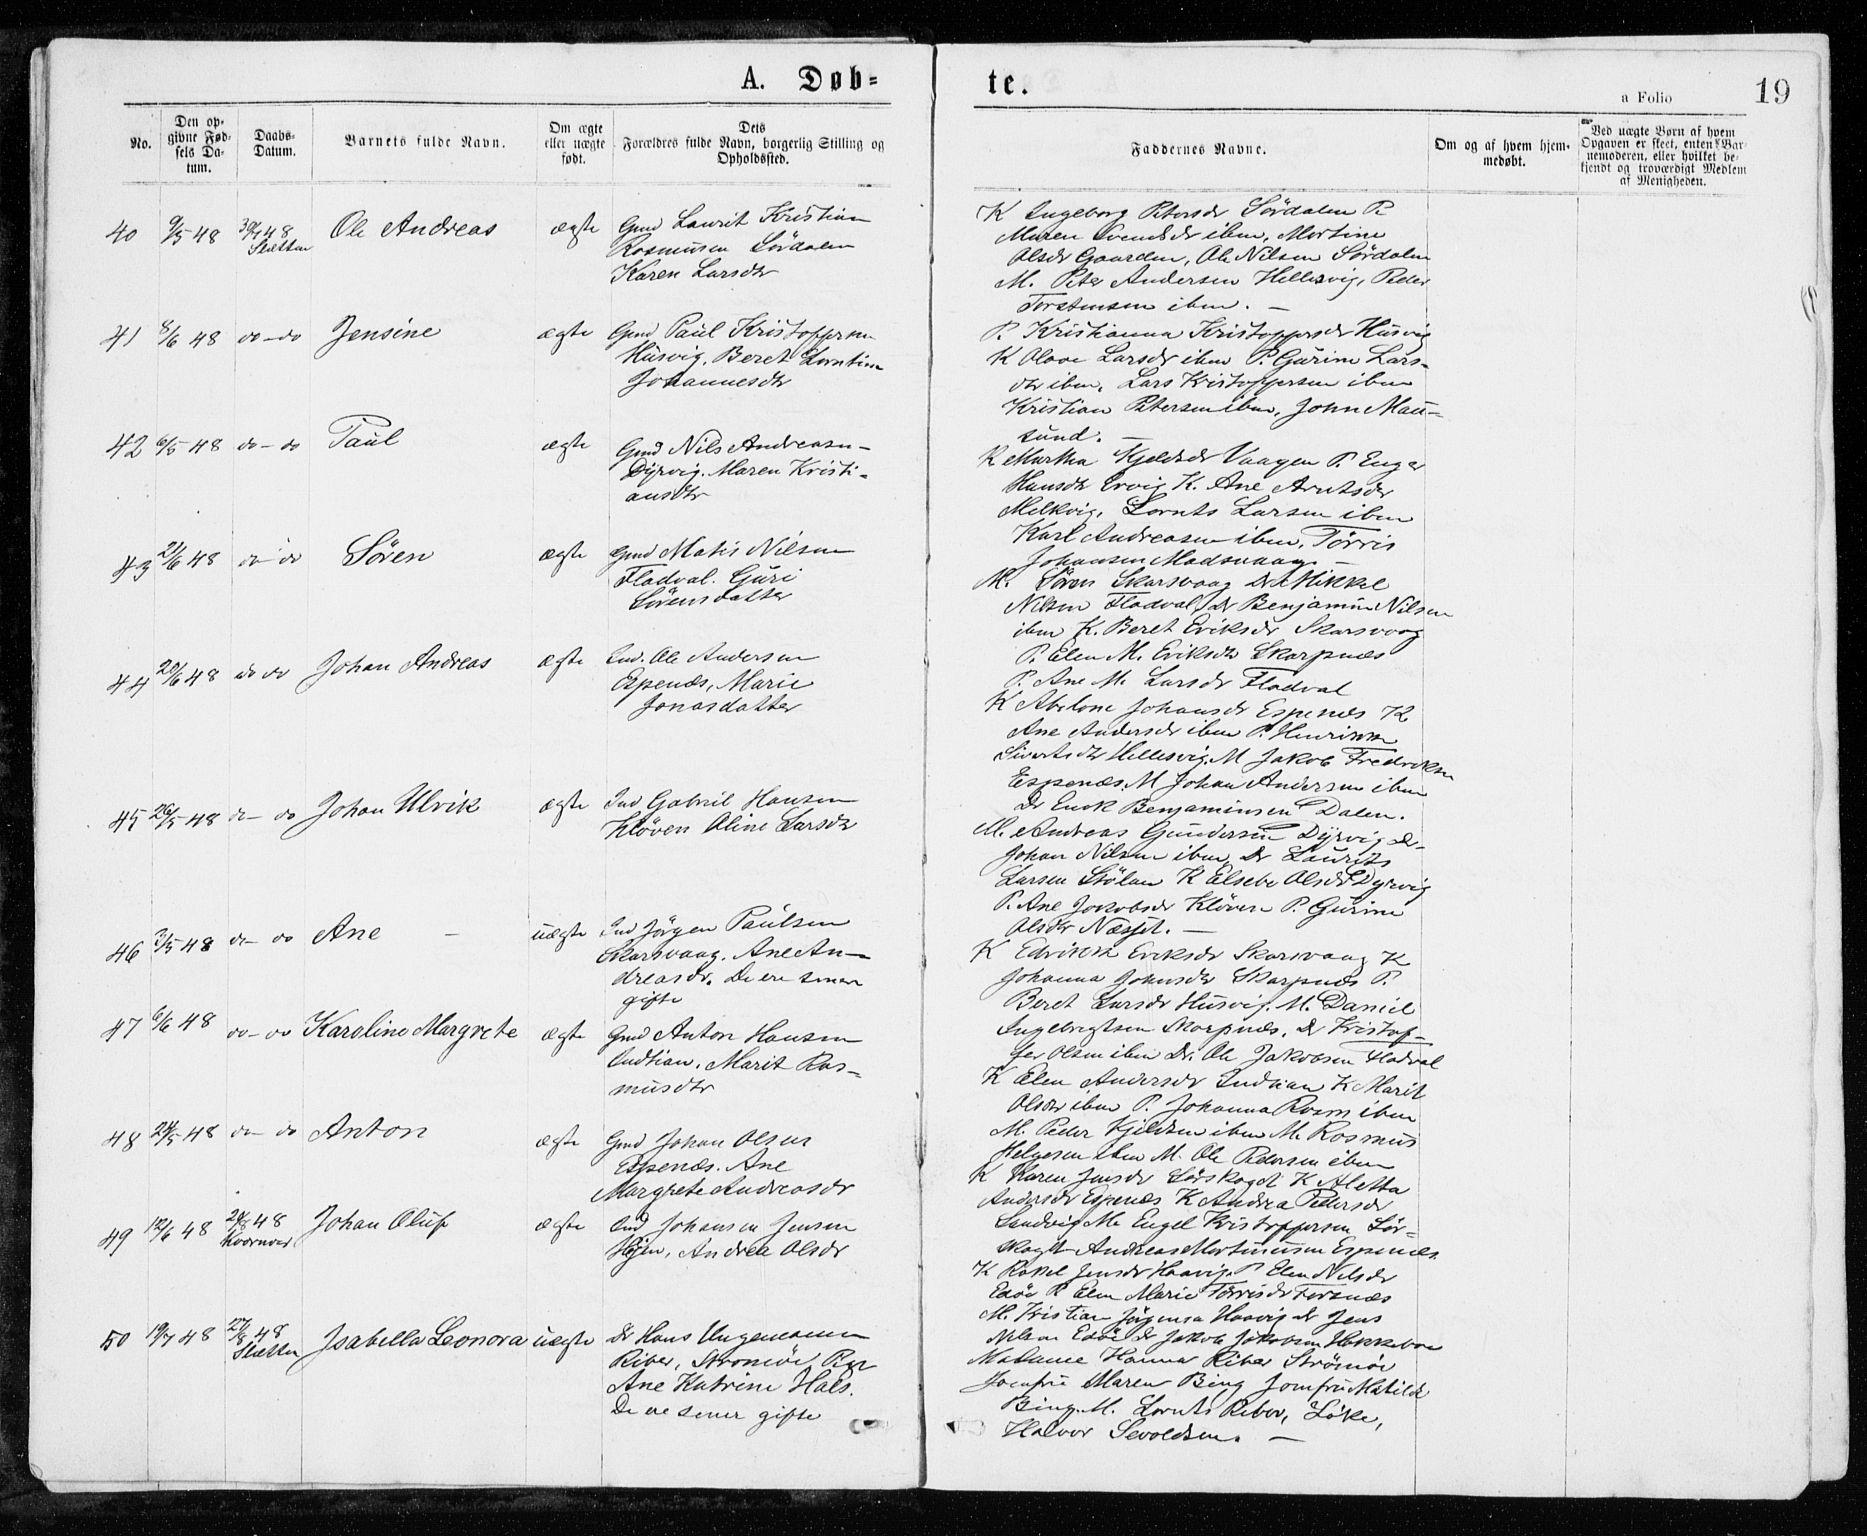 A. Døb=
te.
a Folio
19
No.
Den op-
givne Fød-
sels Da-
tum.
Daabs-
Datum.
Barnets fulde Navn.
Om ægte
eller uægte
født.
Dets
Forældres fulde Navn, borgerlig Stilling og
Opholdssted.
Faddernes Navne.
Om og af hvem hjem-
medøbt.
Ved uægte Børn af hvem
Opgaven er skeet, enten Bar-
nemoderen, eller hvilket be-
kjendt og troværdigt Medlem
af Menigheden.
40 9/5 48
Slætten
Ole Andreas
ægte
Gmd Laurit Kristian
Rasmusen Sördalen
Karen Larsdtr
K Ingeborg Petersdr Sördalen P.
Maren Svendsdr ibm, Martine
Olsdr Gaarden, Ole Nilsen Sördalen
M. Peter Andersen Hellesvig, Peder
Torstensen ibm. —
41 8/6 48 do-do
Jensine
ægte
Gmd Paul Kristoffersen
Husvig, Beret Lorntine
Johannesdtr
P. Kristianna Kristoffersdr Husvig
K Olave Larsdr ibm P. Gurine Lars-
dtr ibm, Lars Kristoffersen ibm
Kristian Petersen ibm, John Mau-
sund. —
42 6/5 48 do-do
Paul
ægte
Gmd Nils Andreasn-
Dyrvig. Maren Kristi-
ansdtr
K Martha Kjeldsdr Vaagen P.
Hansdtr Ervig K. Ane Arntsdr
Melkvig, Lornts Larsen ibm
Karl Andreasen ibm, Törris
Johansen Madsvaag. —
43 21/6 48 do do
Sören
ægte
Gmd Matis Nilsen
Fladval. Guri
Sörensdatter
M. Sören Skarsvaag Dr Mikkel
Nilsen Fladval, Dr Benjamin Nilsen
ibm K. Beret Eriksdr Skarsvaag
P. Elen M. Eriksdtr Skarpnæs
P. Ane M. Larsdr Fladval
44 20/6 48 do do
Johan Andreas
ægte
Ind. Ole Andersen
Espenæs, Marie
Jonasdatter
K Abelone Johansdr Espenæs K
Ane Andersdr ibm P.
Sivertsdtr Hellesvig. M Jakob Fredriksen
Espenæs. M Johan Andersen ibm
Dr Enok Benjaminsen Dalen.
45 26/5 48 do-do
Johan Ulrik
ægte
Ind Gabriel Hansen
Klöven Oline Larsdtr
M. Andreas Gundersen Dyrvig Dr
Johan Nilsen ibm Dr Laurits
Larsen Stölan K Elsebe Olsdr Dyrvig
P. Ane Jakobsdr Klöven P. Gurine
Olsdtr Næsset. —
46 3/5 48 do-do
Ane —
uægte
Ind Jörgen Paulsen
Skarsvaag. Ane An-
dreasdr. De ere senere
gifte
K Edrikke Eriksdr Skarsvaag K
Johanna Johnsdtr Skarpnæs P.
Beret Larsdr Husvig. M. Daniel
Ingebrigtsen Skarpnæs, Dr Kristof-
fer Olsen ibm Dr. Ole Jakobsen Fladval
47 6/6 48 do-do
Karoline Margrete
ægte
Gmd Anton Hansen
Indtian, Marit Ras-
musdtr
K Elen Andersdr Indtian K Marit
Olsdtr ibm P. Johanna Rasm ibm
M. Peder Kjeldsen ibm M. Rasmus
Helgesen ibm M. Ole Pedersen ibm
48 24/5 48 do-do
Anton
ægte
Gmd Johan Olsen
Espenæs. Ane
Margrete Andreasdr
K Karen Jensdr Sörskaget K Aletta
Andersdr Espenæs K Andrea Pedersdr
Sandvig M. Engel Kristoffersen Sör-
skaget Andreas Martinusen Espenæs.
49 12/6 48 20/8 48
Kvarnvær
Johan Oluf
ægte
Ind Johansen Jensen
Hejen, Andrea Olsdr
K Rakel Jensdr Haavig. P Elen Nilsdr
Edöe P Elen Marie Törrisdr Forsnæs
M. Kristian Jörgensn Haavig Dr Jens
Nilsen Edöe Dr Jakob Jakobsen
50 19/7 48 27/8 48
Slætten
Isabella Leonora
uægte
Dr Hans
Riber, Strömöe Pge
Ane Katrine Hals.
De ere senere gifte
Madame Hanna Riber Strömöe
Jomfru Maren Bing Jomfru Matilde
Bing. M. Lornts Riber, Löke,
Halvor Sevaldsen. —